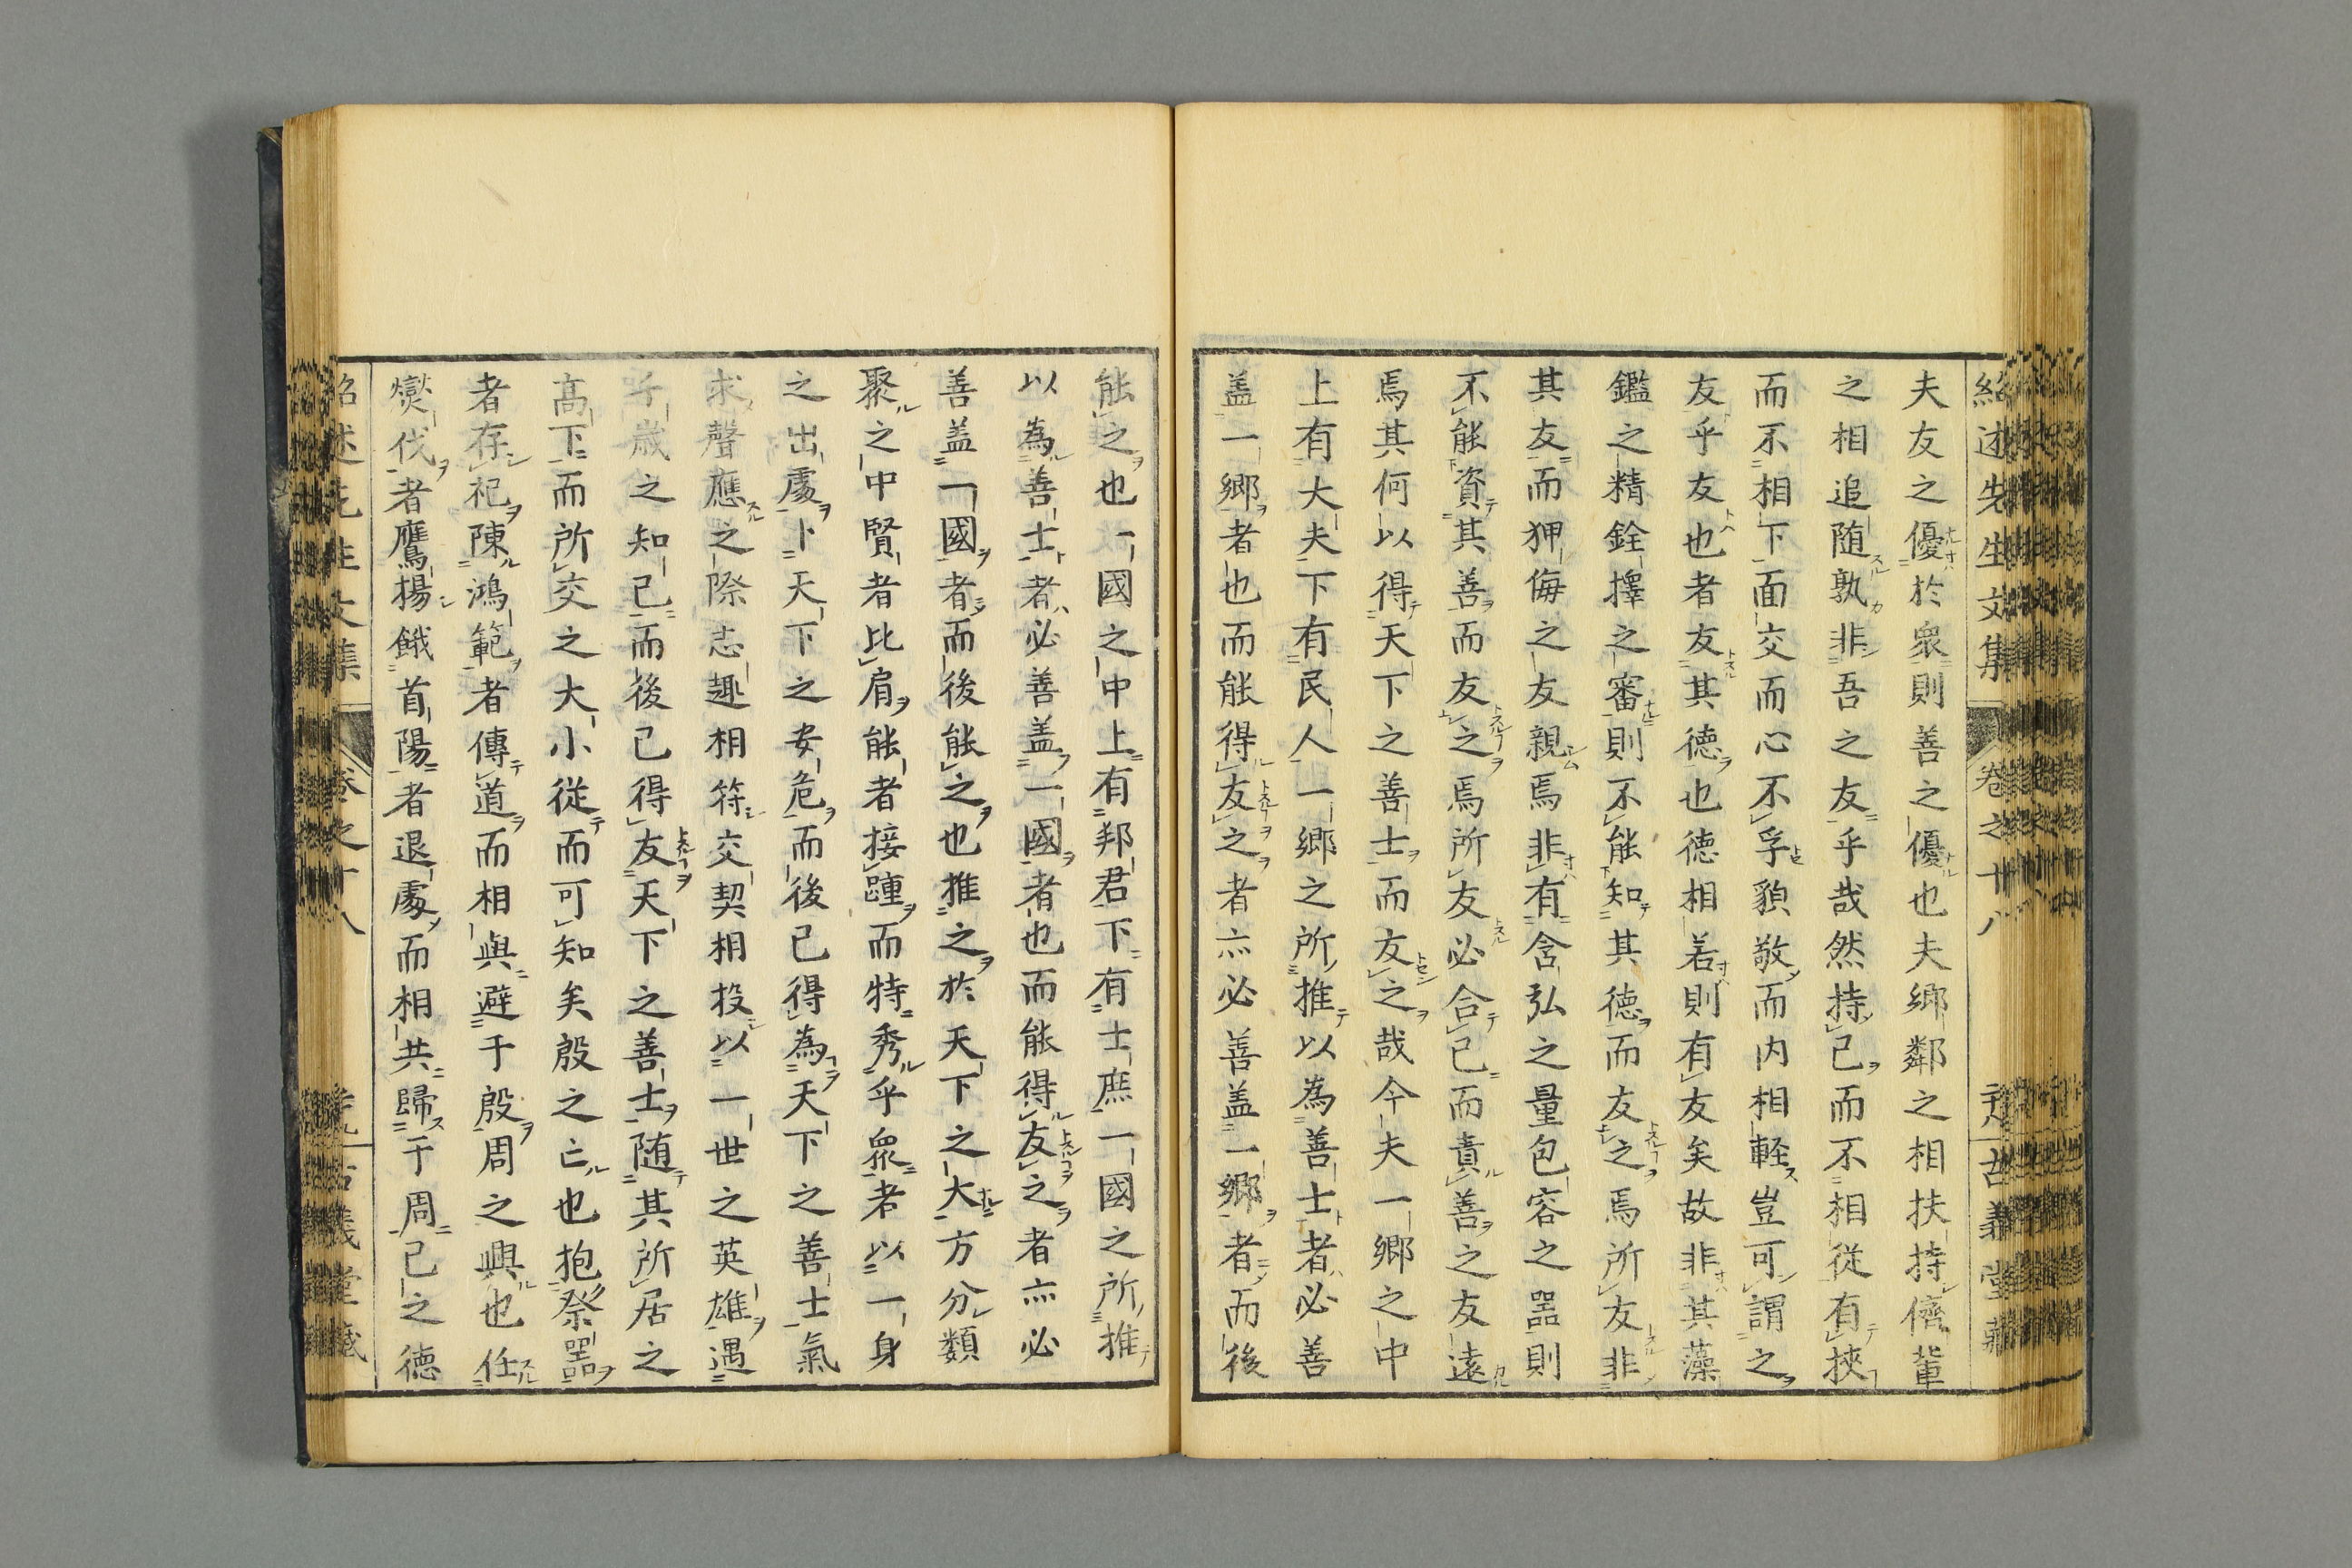 紹述先生文集 卷之十八 古義堂藏
夫友之優於衆則善之優也夫鄉鄰之相扶持儕輩
之相追随孰非吾之友乎哉然持己而不相從有挾
而不相下面交而心不孚貌敬而内相軽豈可謂之
友乎友也者友其德也德相若則有友矣故非其藻
鑑之精銓擇之審則不能知其德而友之焉所友非
其友而狎侮之友親焉非有含弘之量包容之器則
不能資其善而友之焉所友必合己而責善之友遠
焉其何以得天下之善士而友之哉今夫一鄉之中
上有大夫下有民人一鄉之所推以為善士者必善
盖一鄉者也而能得友之者亦必善盖一鄉者而後
能之也一國之中上有邦君下有士庶一國之所推
以為善士者必善盖一國者也而能得友之者亦必
善盖一國者而後能之也推之於天下之大方分類
聚之中賢者比肩能者接踵而特秀乎衆者以一身
之出處卜天下之安危而後已得為天下之善士氣
求聲應之際志趣相符交契相投以一世之英雄遇
千歳之知己而後已得友天下之善士随其所居之
高下而所交之大小従而可知矣殷之亡也抱祭器
者存祀陳鴻範者傳道而相與避于殷周之興也任
爕伐者鷹揚餓首陽者退處而相共歸于周己之德
紹述先生文集 卷之十八 古義堂藏